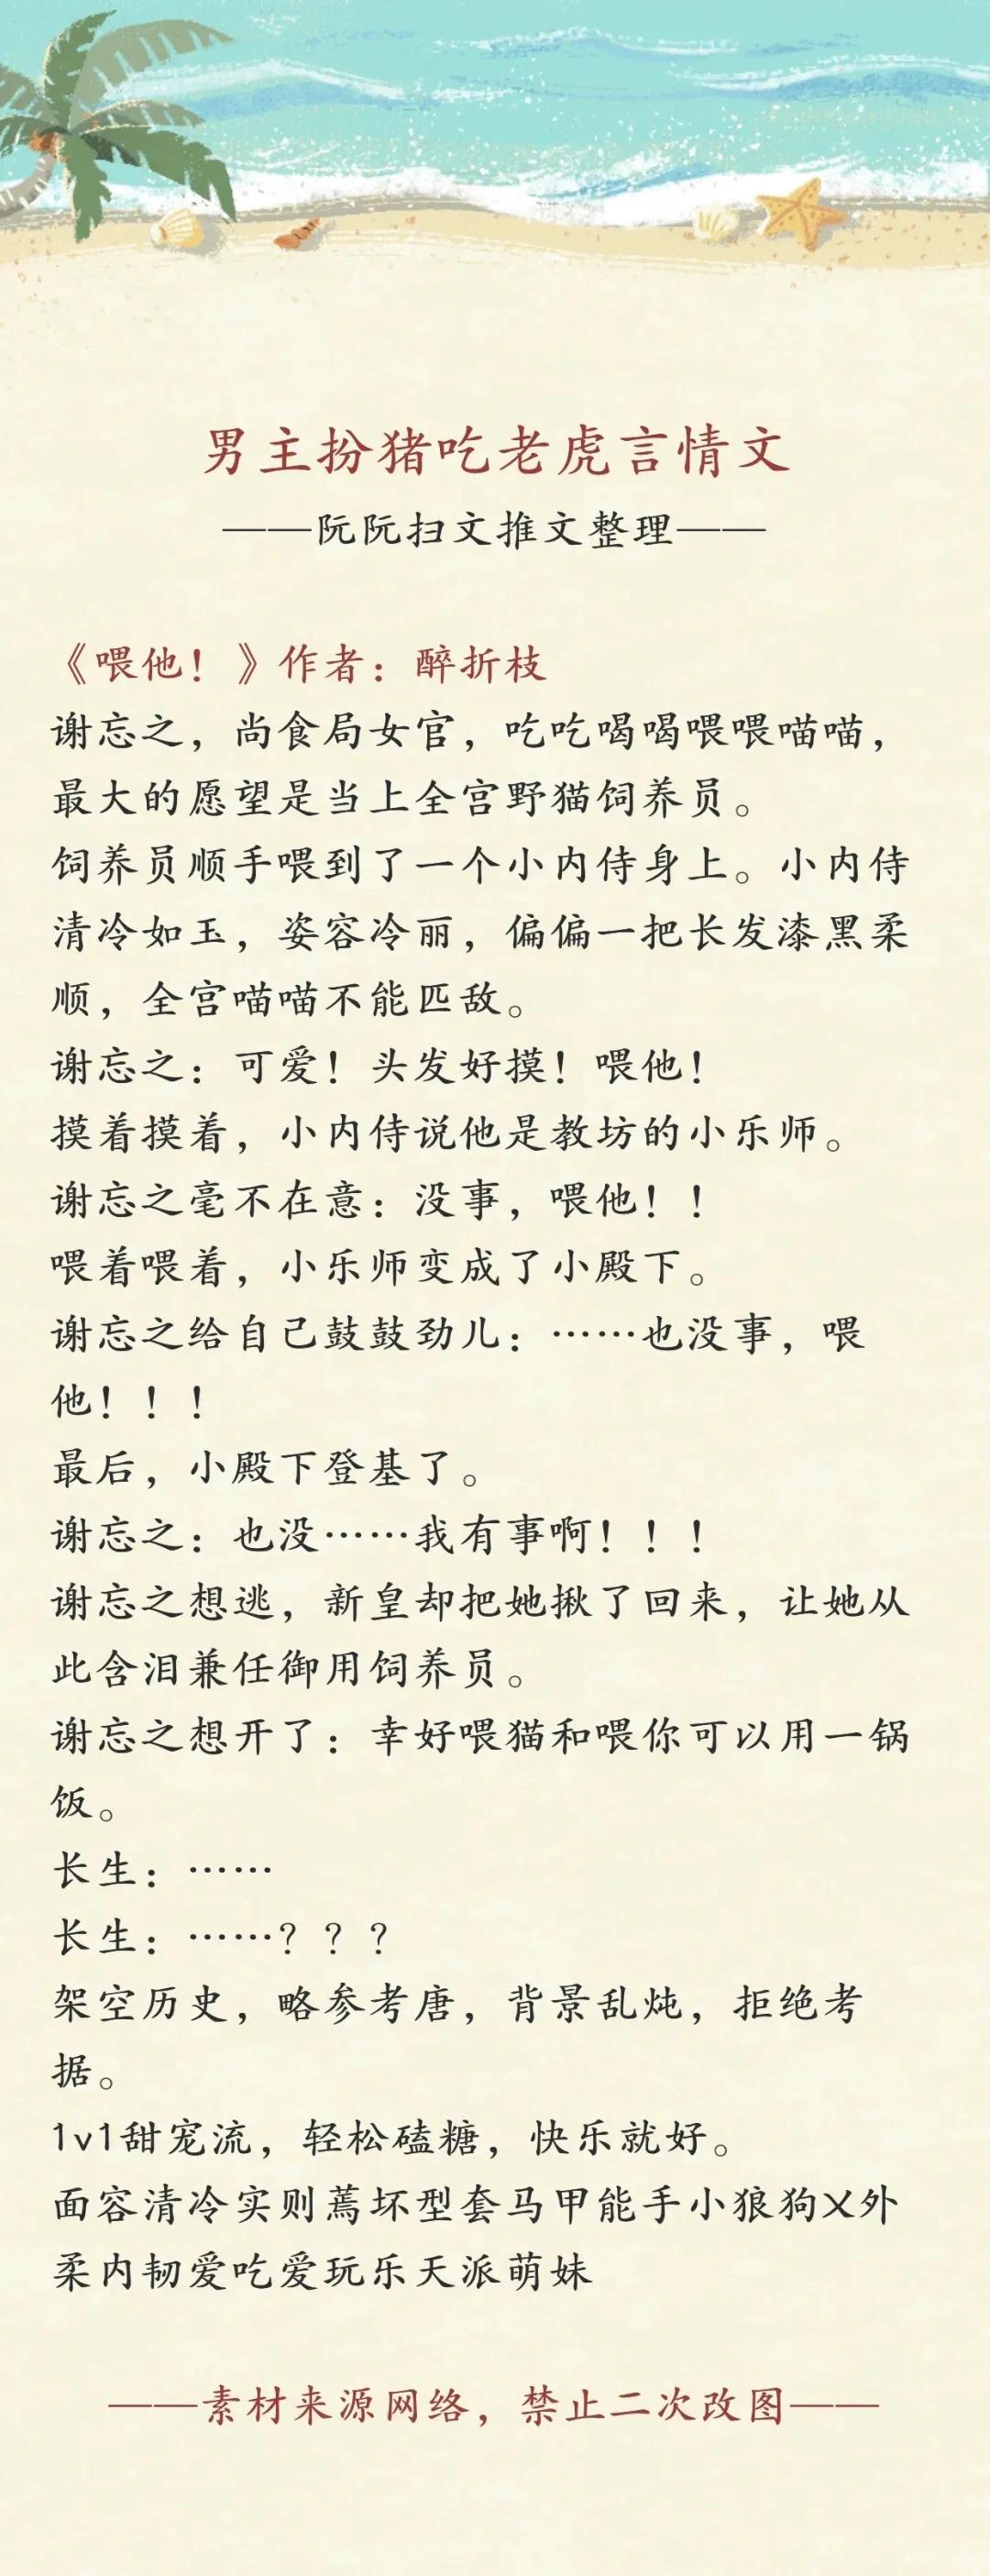 男主扮猪吃老虎言情文
——阮阮扫文推文整理——
《喂他！》作者：醉折枝
谢忘之，尚食局女官，吃吃喝喝喂喂喵喵，
最大的愿望是当上全宫野猫饲养员。
饲养员顺手喂到了一个小内侍身上。小内侍
清冷如玉，姿容冷丽，偏偏一把长发漆黑柔
顺，全宫喵喵不能匹敌。
谢忘之：可爱！头发好摸！喂他！
摸着摸着，小内侍说他是教坊的小乐师。
谢忘之毫不在意：没事，喂他！！
喂着喂着，小乐师变成了小殿下。
谢忘之给自己鼓鼓劲儿：……也没事，喂
他！！！
最后，小殿下登基了。
谢忘之：也没……我有事啊！！！
谢忘之想逃，新皇却把她揪了回来，让她从
此含泪兼任御用饲养员。
谢忘之想开了：幸好喂猫和喂你可以用一锅
饭。
长生：……
长生：……？？？
架空历史，略参考唐，背景乱炖，拒绝考
据。
1v1甜宠流，轻松磕糖，快乐就好。
面容清冷实则蔫坏型套马甲能手小狼狗乂外
柔内韧爱吃爱玩乐天派萌妹
——素材来源网络，禁止二次改图——